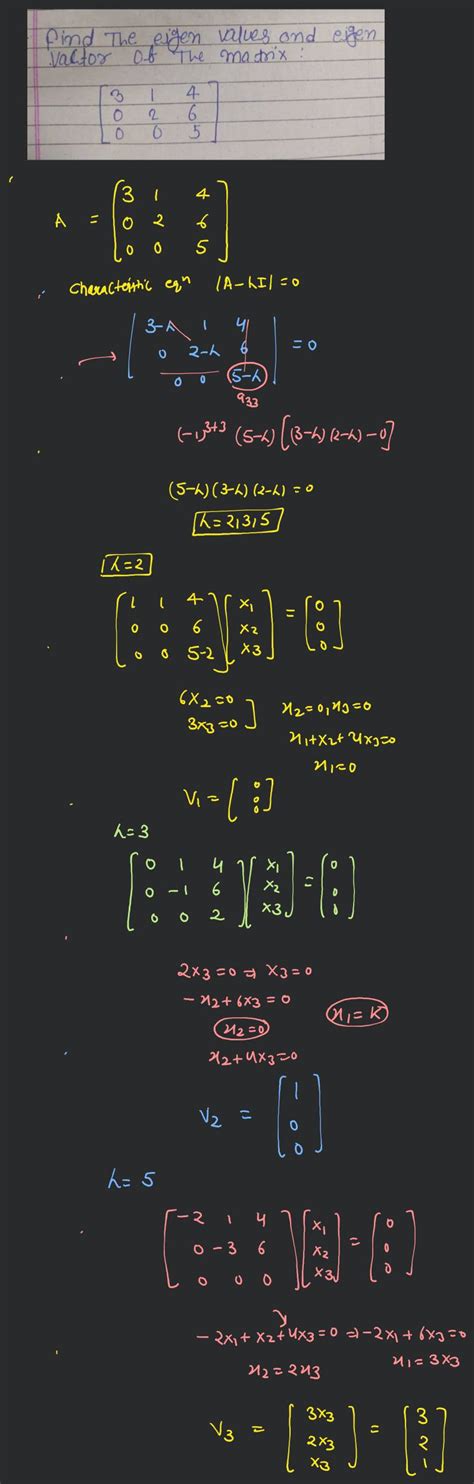 Find The eigen values and eigen
vactor Of The matrix :
[3 1 4
0 2 6
0 0 5]
A = [3 1 4
0 2 6
0 0 5]
Characteristic eqn |A-λI|=0
|3-λ 1 4
0 2-λ 6
0 0 5-λ| = 0
a33
(-1)^3+3 (5-λ) [(3-λ)(2-λ)-0]
(5-λ)(3-λ)(2-λ)=0
λ=2,3,5
λ=2
[1 1 4
0 0 6
0 0 5-2] [x1
x2
x3] = [0
0
0]
6x2=0
3x3=0 ] x2=0, x3=0
x1+x2+4x3=0
x1=0
V1 = [0
0
0]
λ=3
[0 1 4
0 -1 6
0 0 2] [x1
x2
x3] = [0
0
0]
2x3=0 ⇒ x3=0
-x2+6x3=0
x1=K
x2=0
x2+4x3=0
V2 = [1
0
0]
λ= 5
[-2 1 4
0 -3 6
0 0 0] [x1
x2
x3] = [0
0
0]
-2x1+x2+4x3=0 ⇒ -2x1+6x3=0
x2=2x3 x1=3x3
V3 = [3x3
2x3
x3] = [3
2
1]